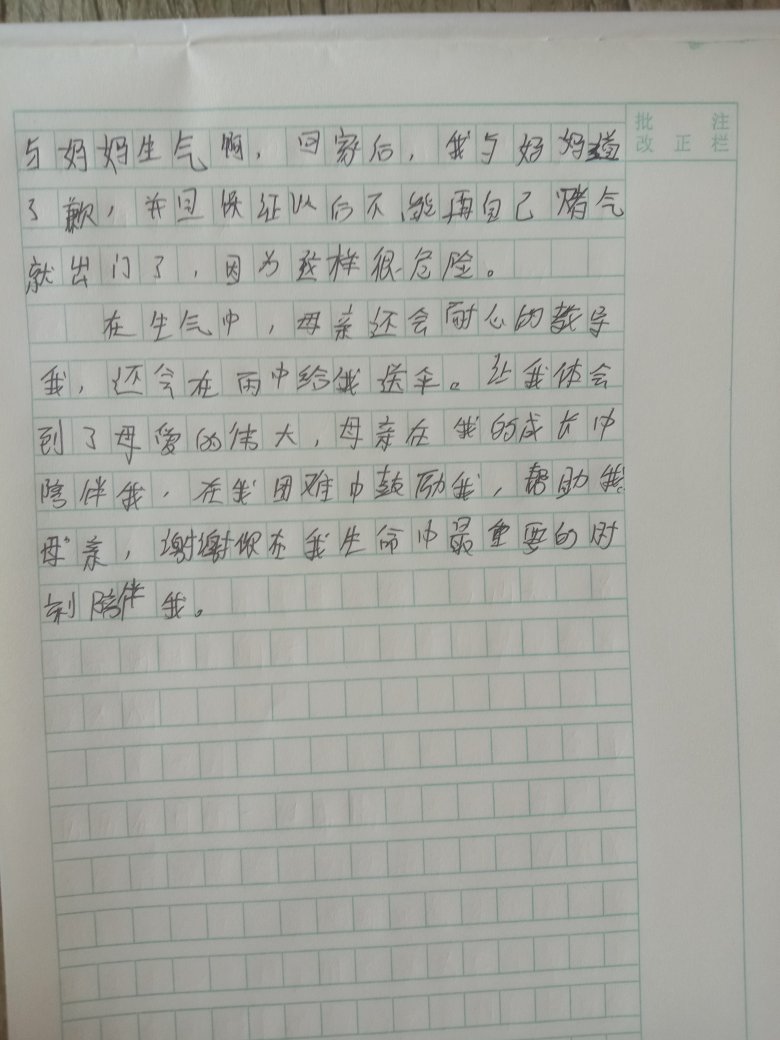 批 注
改 正 栏
与妈妈生气啊，回家后，我与妈妈道
了歉，并且保证以后不能再自己赌气
就出门了，因为这样很危险。
在生气中，母亲还会耐心的教导
我，还会在雨中给我送伞。让我体会
到了母爱的伟大，母亲在我的成长中
陪伴我，在我困难中鼓励我，帮助我。
母亲，谢谢你在我生命中最重要的时
刻陪伴我。